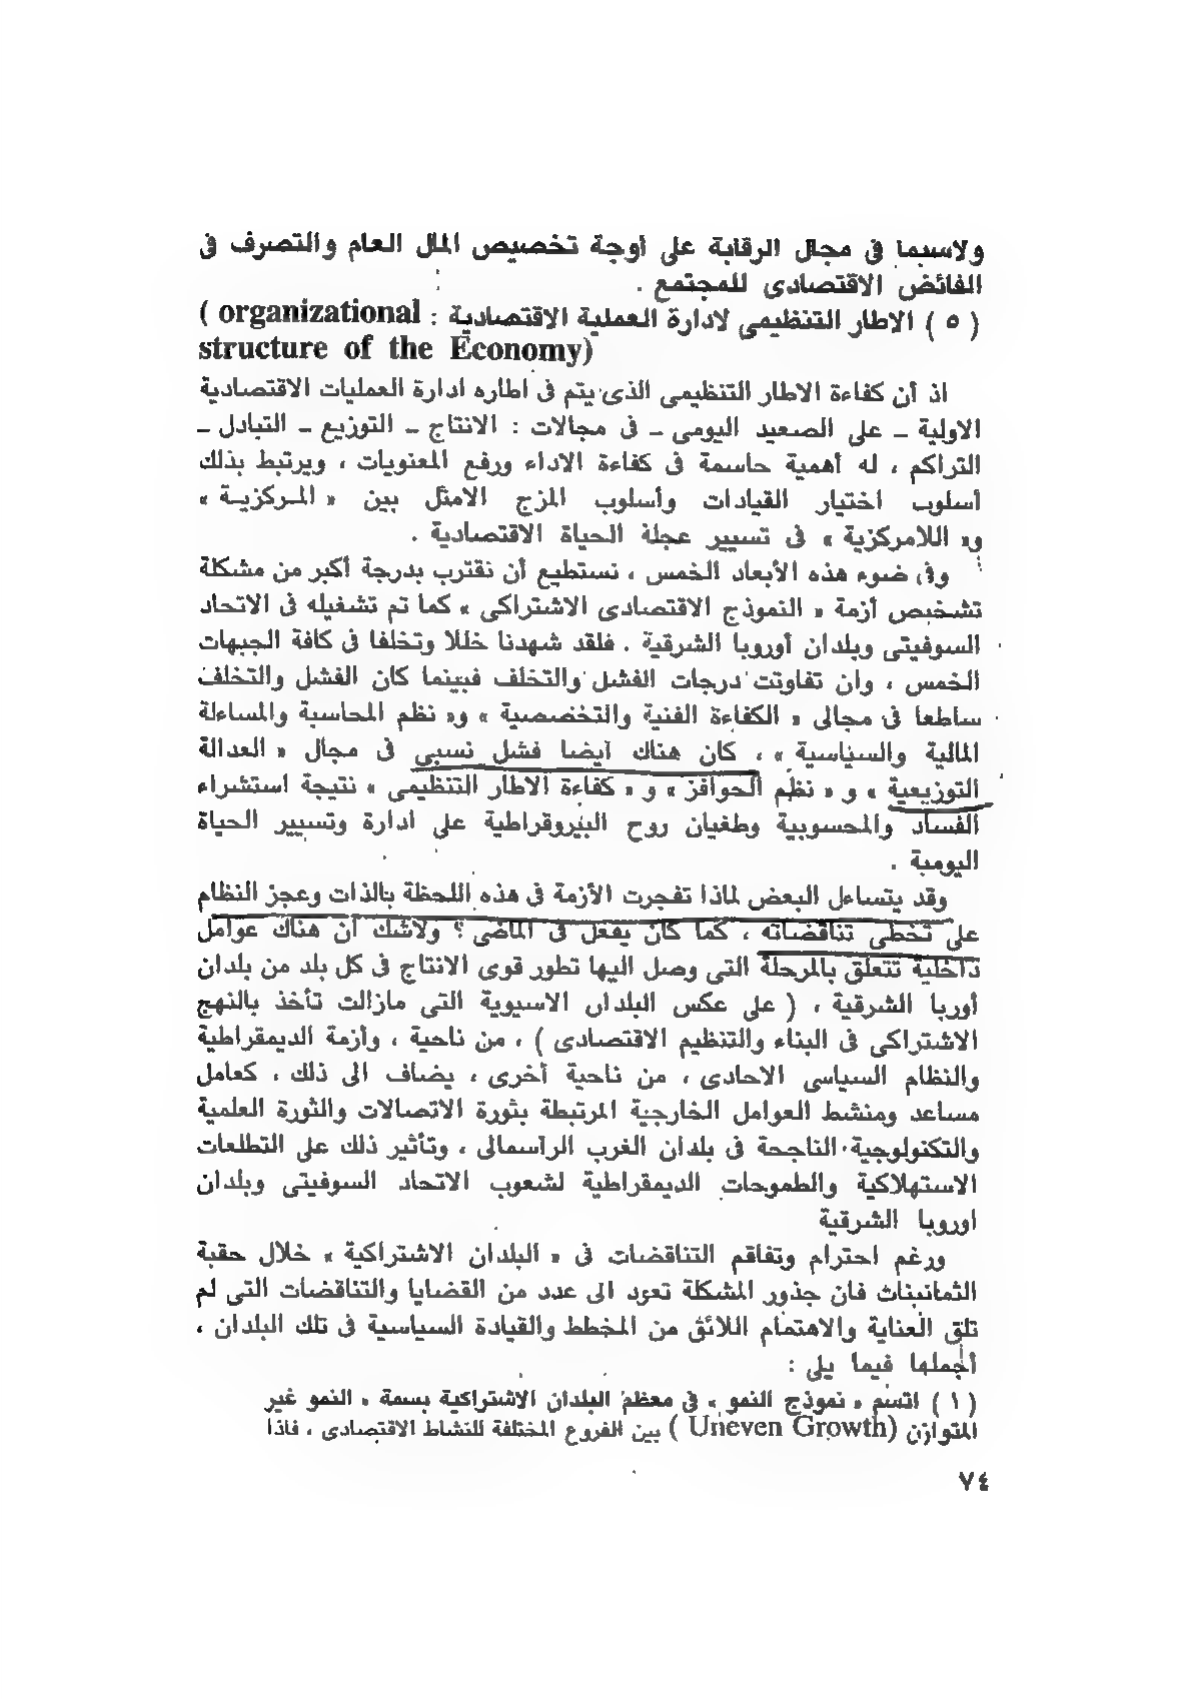 ولاسيما فى مجال الرقابة على أوجة تخصيص المال العام والتصرف فى
الفائض الاقتصادى للمجتمع .
( ٥ ) الاطار التنظيمى لادارة العملية الاقتصادية : ( organizational
structure of the Economy)
اذ أن كفاءة الاطار التنظيمى الذى يتم فى اطاره ادارة العمليات الاقتصادية
الاولية ــ على الصعيد اليومى ــ فى مجالات : الانتاج ــ التوزيع ــ التبادل ــ
التراكم ، له أهمية حاسمة فى كفاءة الاداء ورفع المعنويات ، ويرتبط بذلك
أسلوب اختيار القيادات وأسلوب المزج الامثل بين « المركزية »
و« اللامركزية » فى تسيير عجلة الحياة الاقتصادية .
وفى ضوء هذه الأبعاد الخمس ، نستطيع أن نقترب بدرجة أكبر من مشكلة
تشخيص أزمة « النموذج الاقتصادى الاشتراكى » كما تم تشغيله فى الاتحاد
السوفيتى وبلدان أوروبا الشرقية . فلقد شهدنا خللا وتخلفا فى كافة الجبهات
الخمس ، وان تفاوتت درجات الفشل والتخلف فبينما كان الفشل والتخلف
ساطعا فى مجالى « الكفاءة الفنية والتخصصية » و« نظم المحاسبة والمساءلة
المالية والسياسية » ، كان هناك أيضا فشل نسبى فى مجال « العدالة
التوزيعية » و « نظم الحوافز » و « كفاءة الاطار التنظيمى » نتيجة استشراء
الفساد والمحسوبية وطغيان روح البيروقراطية على ادارة وتسيير الحياة
اليومية .
وقد يتساءل البعض لماذا تفجرت الأزمة فى هذه اللحظة بالذات وعجز النظام
على تخطى تناقضاته ، كما كان يفعل فى الماضى ؟ ولاشك أن هناك عوامل
داخلية تتعلق بالمرحلة التى وصل اليها تطور قوى الانتاج فى كل بلد من بلدان
أوربا الشرقية ، ( على عكس البلدان الاسيوية التى مازالت تأخذ بالنهج
الاشتراكى فى البناء والتنظيم الاقتصادى ) ، من ناحية ، وأزمة الديمقراطية
والنظام السياسى الاحادى ، من ناحية أخرى ، يضاف الى ذلك ، كعامل
مساعد ومنشط العوامل الخارجية المرتبطة بثورة الاتصالات والثورة العلمية
والتكنولوجية الناجحة فى بلدان الغرب الرأسمالى ، وتأثير ذلك على التطلعات
الاستهلاكية والطموحات الديمقراطية لشعوب الاتحاد السوفيتى وبلدان
اوروبا الشرقية
ورغم احترام وتفاقم التناقضات فى « البلدان الاشتراكية » خلال حقبة
الثمانينات فان جذور المشكلة تعود الى عدد من القضايا والتناقضات التى لم
تلق العناية والاهتمام اللائق من المخطط والقيادة السياسية فى تلك البلدان ،
أجملها فيما يلى :
( ١ ) اتسم « نموذج النمو » فى معظم البلدان الاشتراكية بسمة « النمو غير
المتوازن (Uneven Growth ) بين الفروع المختلفة للنشاط الاقتصادى ، فاذا
٧٤